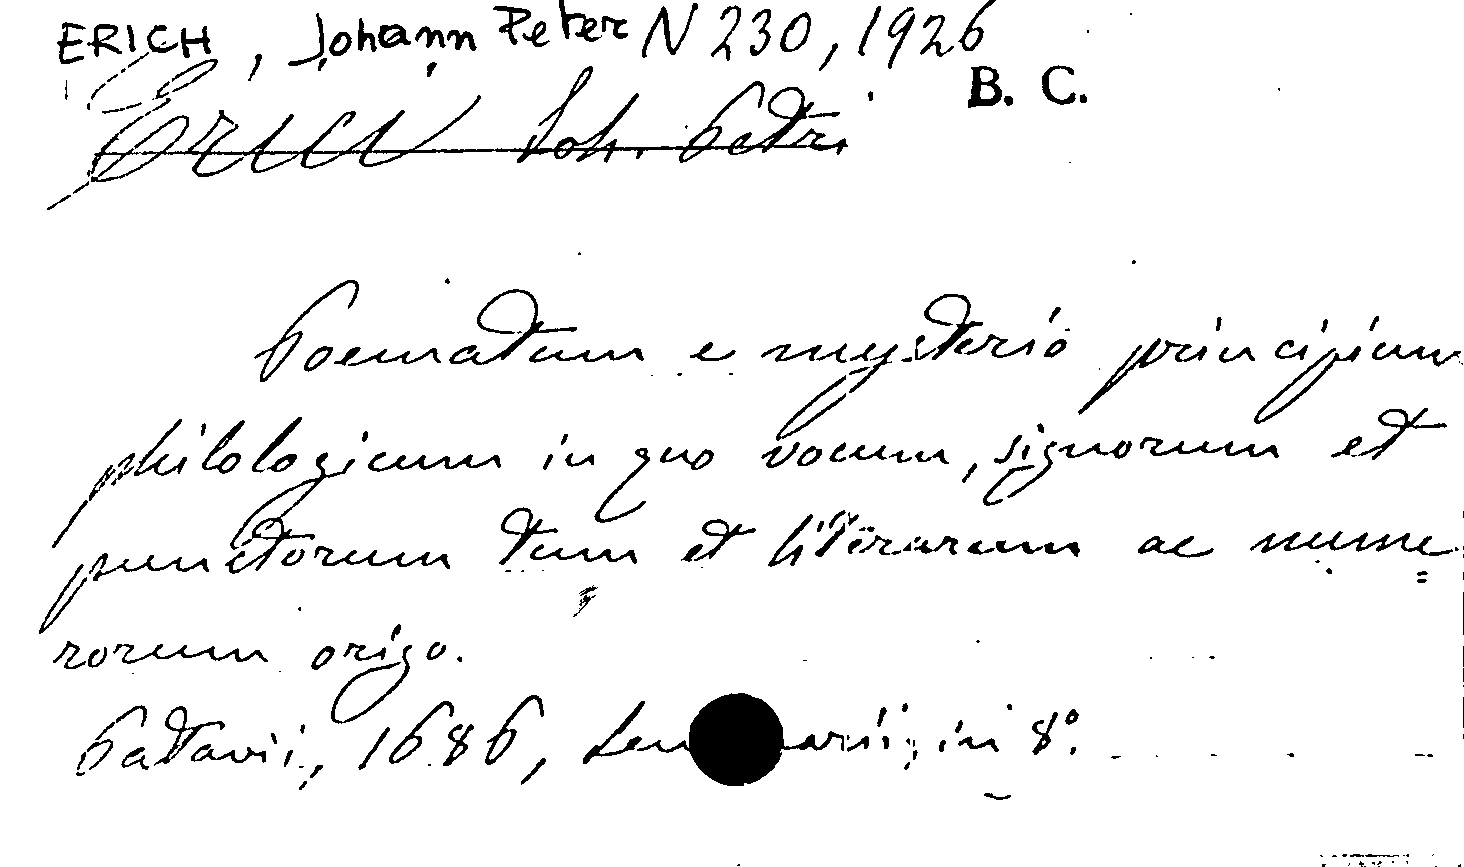 ERICH, Johann Peter N 230, 1926
B. C.
Erici Joh. Petri
Poematum e mysterio principium
philologicum in quo vocum, signorum et
punctorum tum et literarum ac nume
rorum origo.
Patavii, 1686, in 8º.